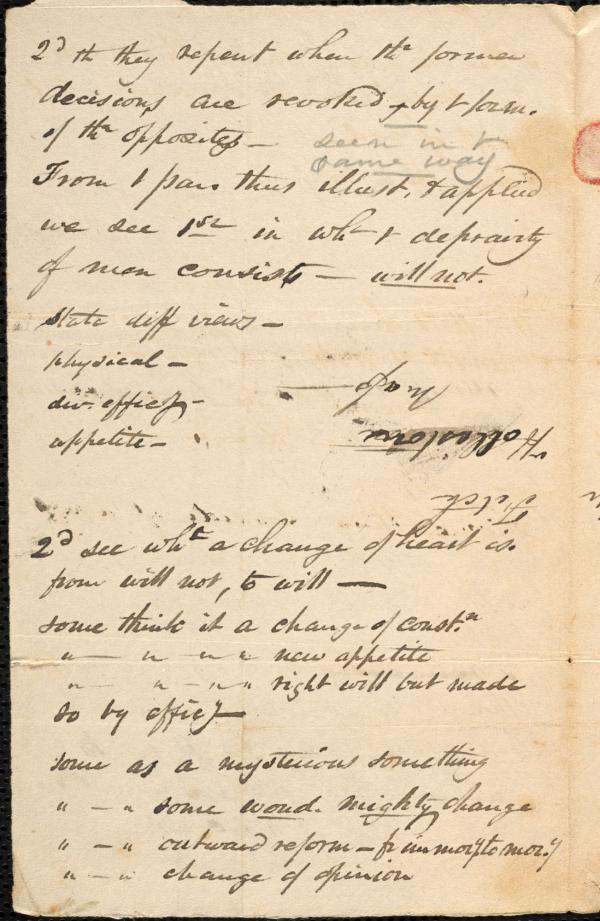 2d th they repent when the former
decisions are revoked, by t form.
of the opposites —
seen in t
same way
From t par. thus illust. & applied
we see 1st in wht t depravity
of man consists — will not.
state diff views —
physical —
div. efficy —
appetite —
2d see wht a change of heart is.
from will not, to will —
some think it a change of constn
" — " — " " new appetite
" — " — " " right will but made
so by efficy —
some as a mysterious something
" — " some wond. mighty change
" — " outward reform — fr immory to mory
" — " change of opinion